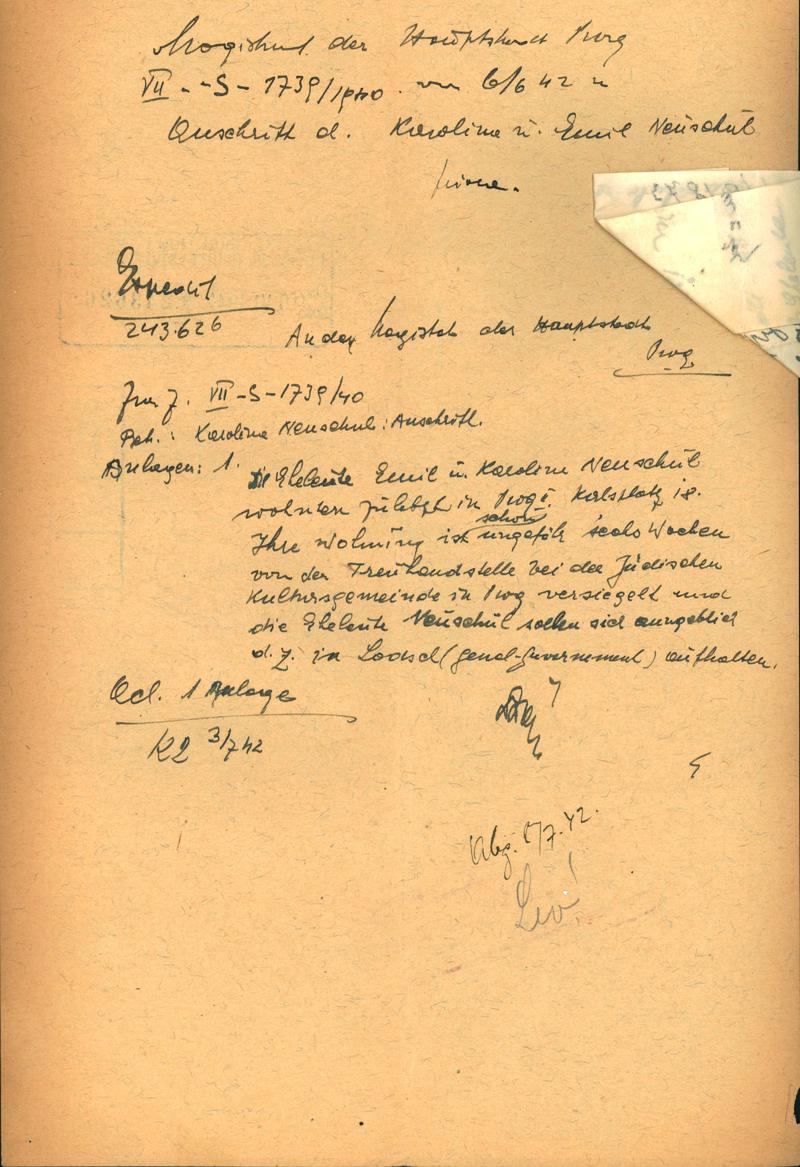 Magistrat der Hauptstadt Prag
VII - S - 1739/1940 von 6/6 42
Anschrift d. Karolina u. Emil Neuschul
Expedit
243.626
An den Magistrat der Hauptstadt
Prag
Zur Z. VII-S-1739/40
Betr.: Karolina Neuschul: Anschrift.
Anlagen: 1.
Die Eheleute Emil u. Karolina Neuschul
wohnten zuletzt in Prag I. Karlsplatz 18.
Ihre Wohnung ist schon ungefähr sechs Wochen
von der Treuhandstelle bei der Jüdischen
Kultusgemeinde in Prag versiegelt und
die Eheleute Neuschul sollen sich angeblich
d. Z. in Lodsch (Genal-Guvernement) aufhalten.
Ad. 1 Anlage
3/7 42
Abg. /7.42.